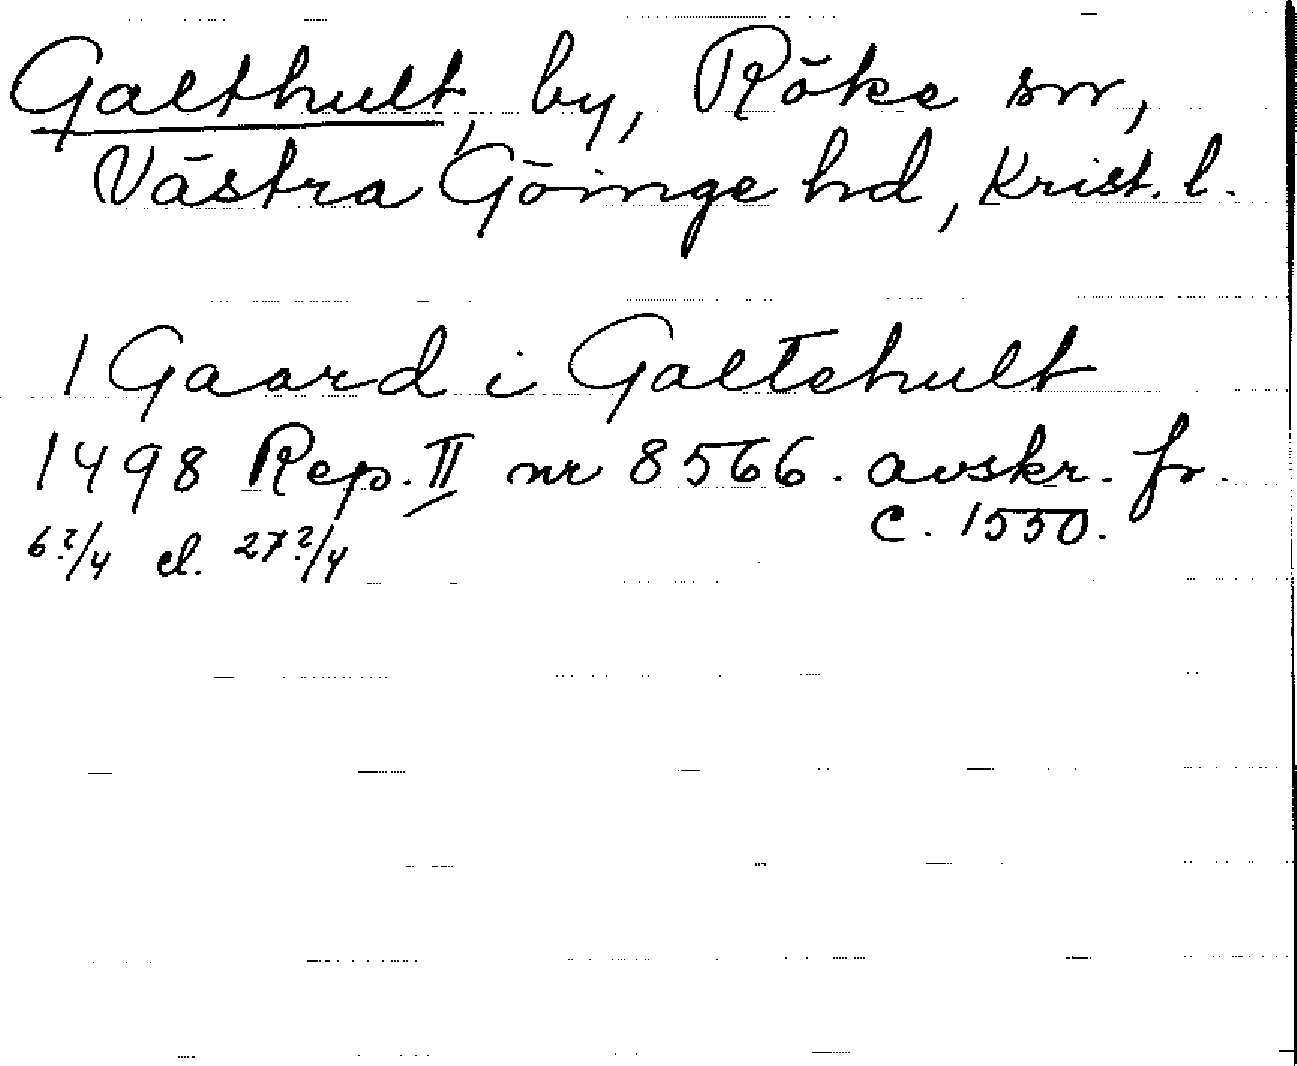 Galthult, by, Röke sn,
Västra Göinge hd, Krist. l.
1 Gaard i Galtehult
1498 Rep. II nr 8566. avskr. fr.
c. 1550.
6?/4 el. 27?/4